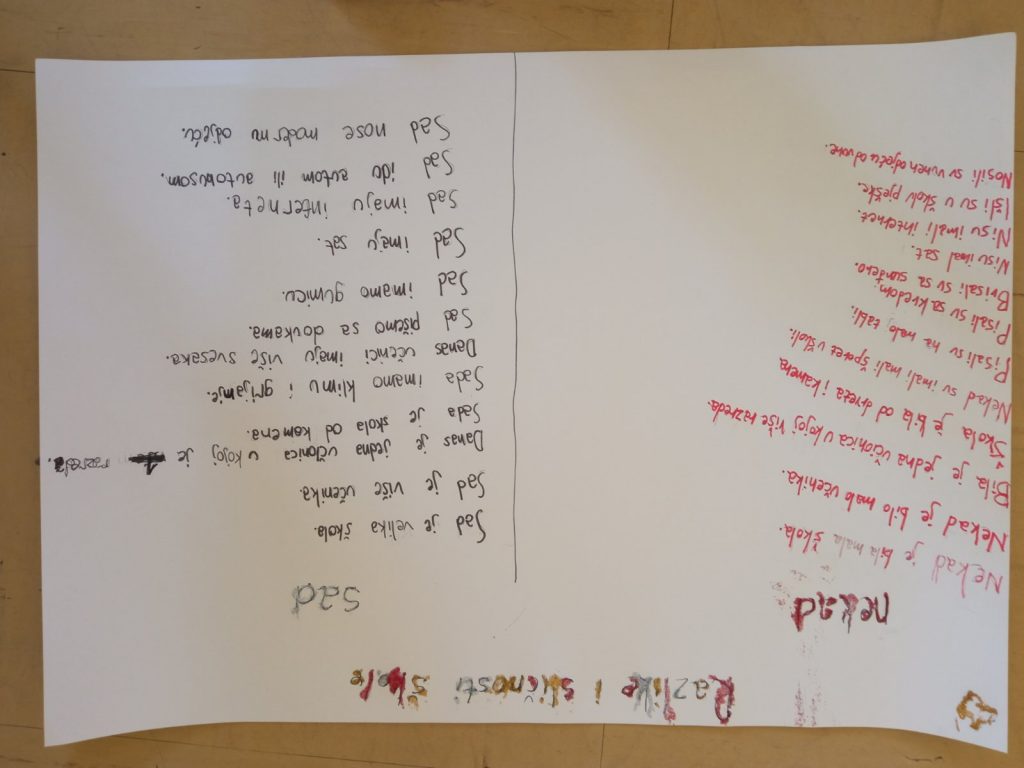 Razlike i sličnosti škole
nekad
Nekad je bila mala škola.
Nekad je bilo malo učenika.
Bila je jedna učionica u kojoj više razreda.
Škola je bila od drveza i kamena
Nekad su imali mali šporet u školi.
Pisali su na malo tabli.
Pisali su sa kredom,
Brisali su sa sunđero.
Nisu imal sat.
Nisu imali internet.
Išli su u školu pješke.
Nosili su odjeću od vune.
sad
Sad je velika škola.
Sad je više učenika.
Danas je jedna učionica u kojoj je
Sada je skola od kamena.
Sada imamo klimu i grijanje.
Danas učenici imaju više svesaka.
Sad pišemo sa
Sad imamo gumicu.
Sad imaju sat.
Sad imaju interneta.
Sad idu autom ili autobusom.
Sad nose modernu odjeću.